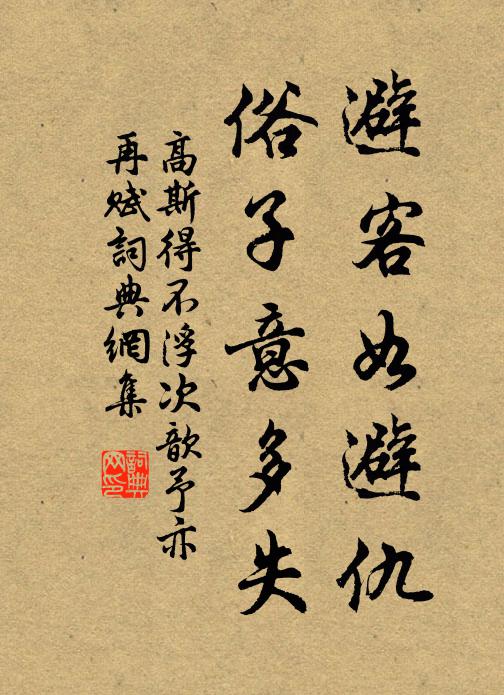 避客如避仇
俗子意多失
高斯得不浮次歆予亦
再赋詞典網集
詞典网印